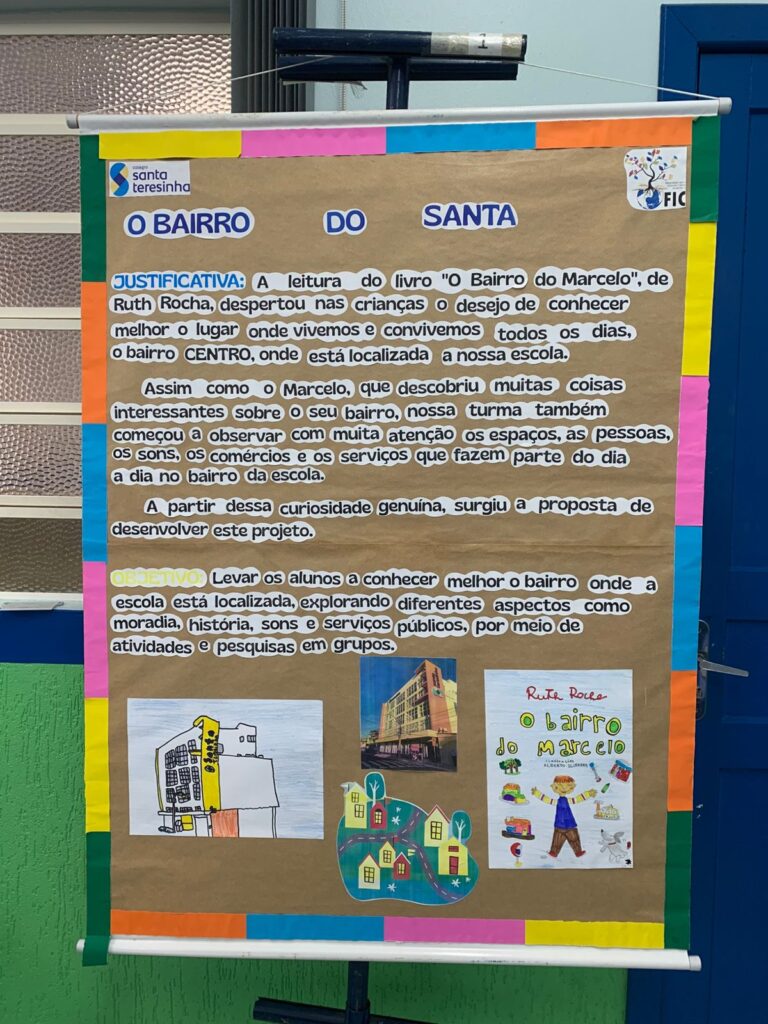 1
colégio
santa
teresinha
FIC
O BAIRRO DO SANTA
JUSTIFICATIVA: A leitura do livro "O Bairro do Marcelo", de
Ruth Rocha, despertou nas crianças o desejo de conhecer
melhor o lugar onde vivemos e convivemos todos os dias,
o bairro CENTRO, onde está localizada a nossa escola.
Assim como o Marcelo, que descobriu muitas coisas
interessantes sobre o seu bairro, nossa turma também
começou a observar com muita atenção os espaços, as pessoas,
os sons, os comércios e os serviços que fazem parte do dia
a dia no bairro da escola.
A partir dessa curiosidade genuína, surgiu a proposta de
desenvolver este projeto.
OBJETIVO: Levar os alunos a conhecer melhor o bairro onde a
escola está localizada, explorando diferentes aspectos como
moradia, história, sons e serviços públicos, por meio de
atividades e pesquisas em grupos.
Ruth Rocha
o bairro
do marcelo
santa